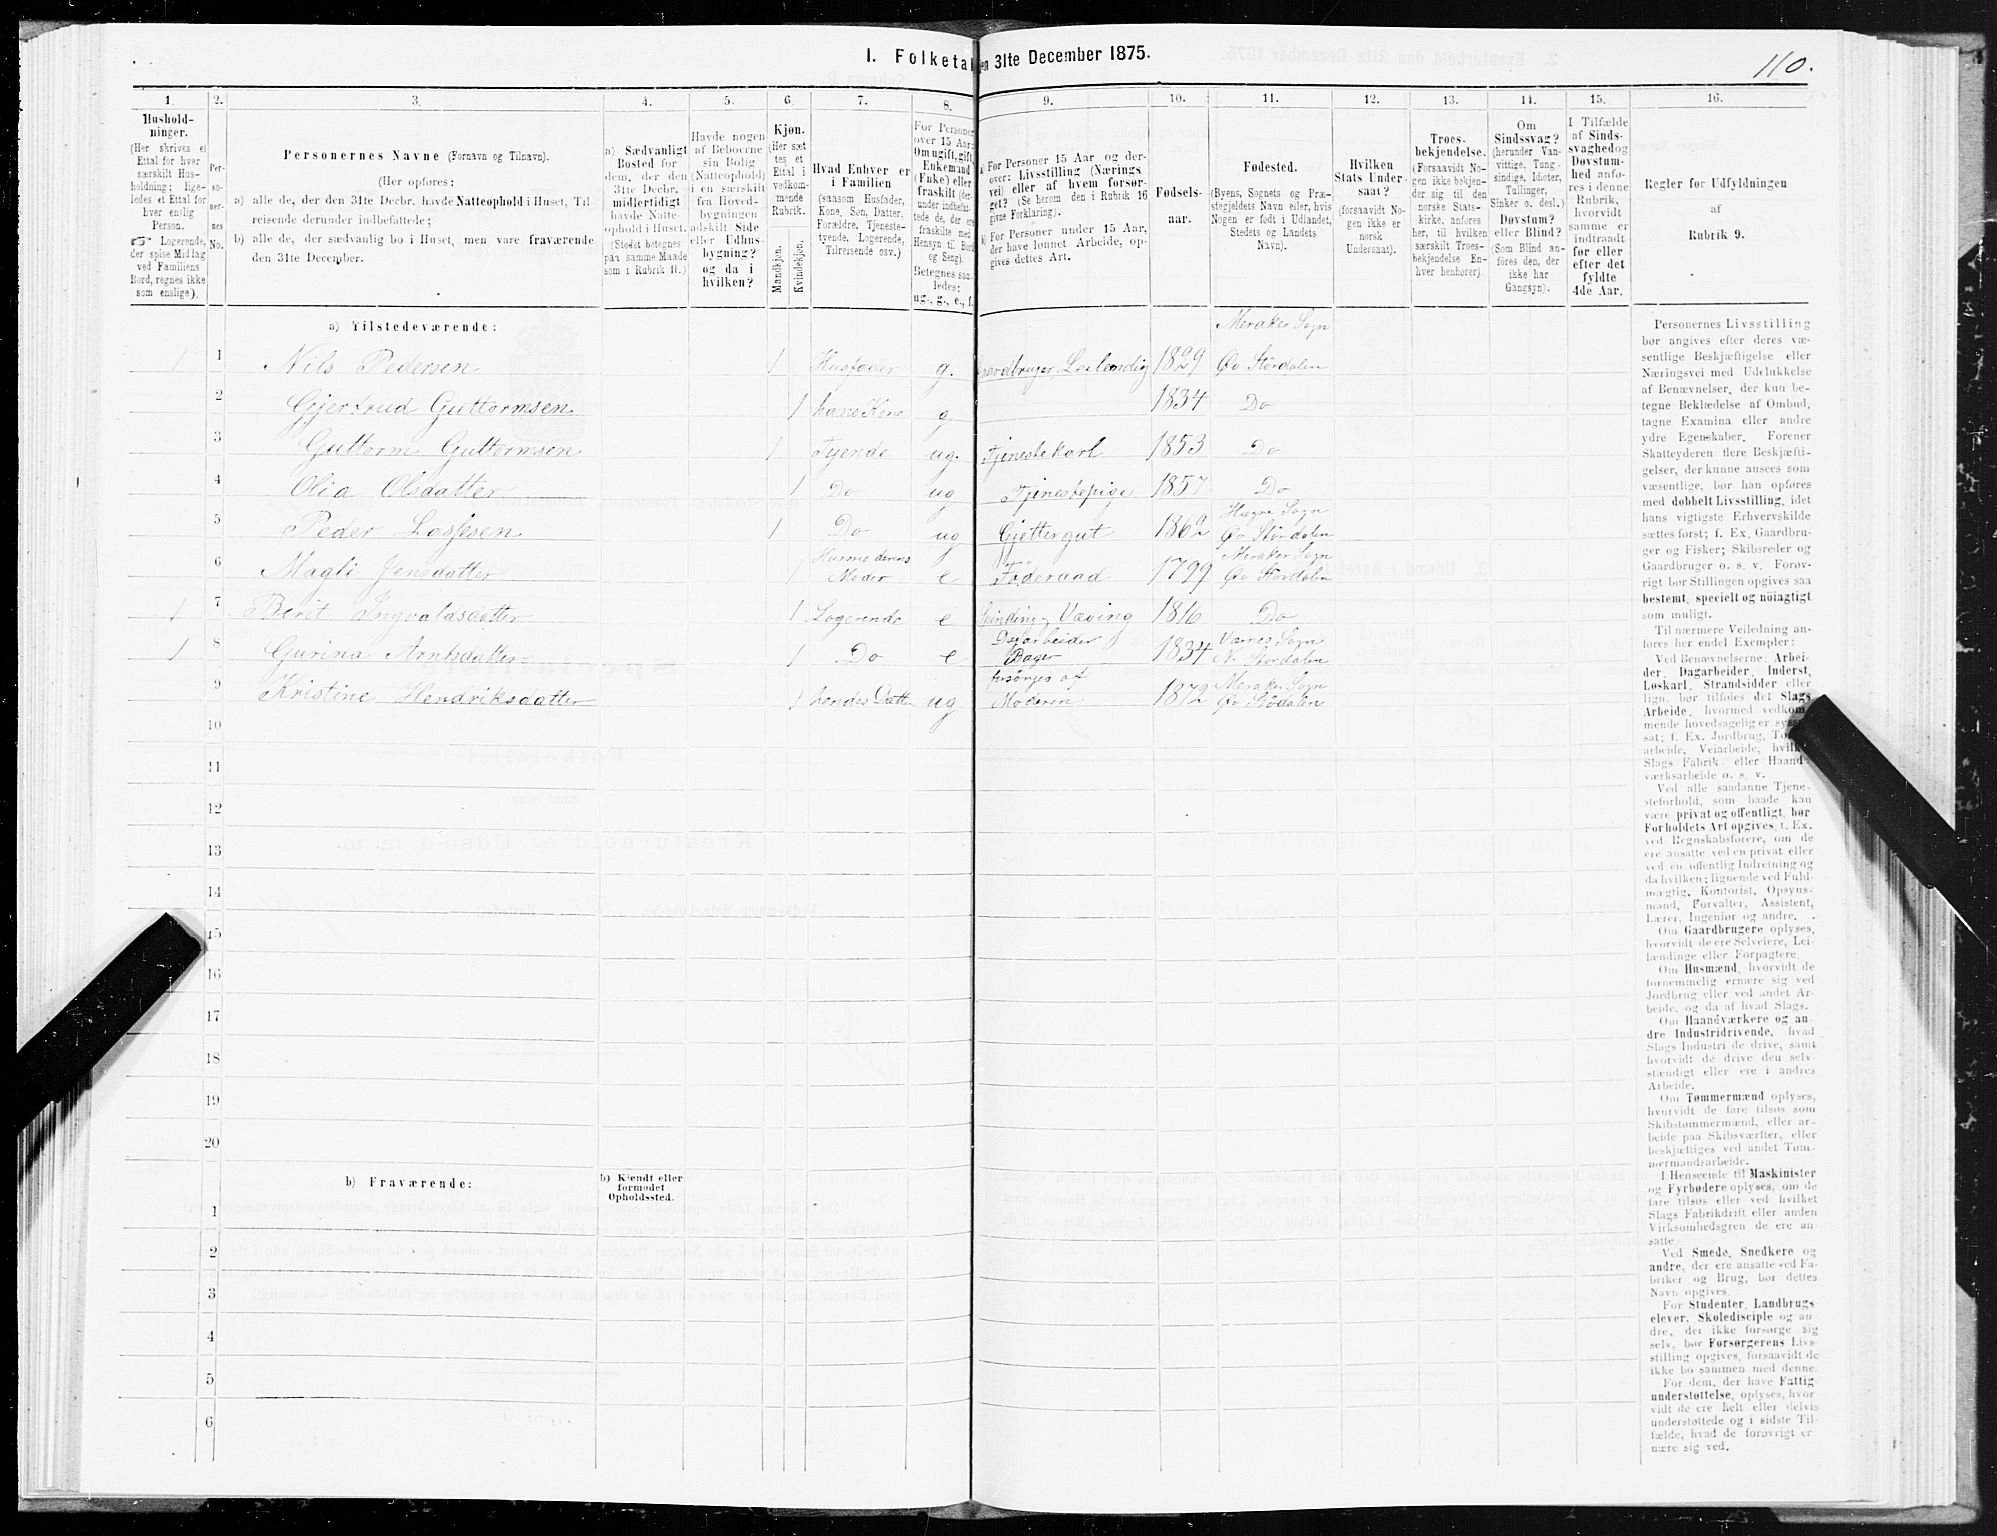 I. Folketal den 31te December 1875.
110.
1. 2. 3. 4. 5. 6. 7. 8. 9. 10. 11. 12. 13. 14. 15. 16.
Husholdninger.
(Her skrives et Ettal for hver særskilt Husholdning; ligeledes et Ettal for hver enslig Person.
☞ Logerende, der spise Middag ved Familiens Bord, regnes ikke som enslige).
Personernes No.
Personernes Navne (Fornavn og Tilnavn).
(Her opføres:
a) alle de, der den 31te Decbr. havde Natteophold i Huset, Tilreisende derunder indbefattede;
b) alle de, der sædvanlig bo i Huset, men vare fraværende den 31te December.
a) Sædvanligt Bosted for dem, der den 31te Decbr. midlertidigt havde Natteophold i Huset.
(Stedet betegnes paa samme Maade som i Rubrik 11.)
Havde nogen af Beboerne sin Bolig (Natteophold) i en særskilt fra Hovedbygningen adskilt Side eller Udhusbygning? og da i hvilken?
Kjøn.
(Her sættes et Ettal i vedkommende Rubrik.
Mandkjøn.
Kvindekjøn.
Hvad Enhver er i Familien
(saasom Husfader, Kone, Søn, Datter, Forældre, Tjenestetyende, Logerende, Tilreisende osv.)
For Personer over 15 Aar: Om ugift, gift, Enkemand (Enke) eller fraskilt (derunder indbefattede de, der ere fraskilte med Hensyn til Bord og Seng).
Betegnes saaledes: ug., g., e., f.
a) For Personer 15 Aar og derover: Livsstilling (Næringsvei) eller af hvem forsørget? (Se herom den i Rubrik 16 givne Forklaring).
b) For Personer under 15 Aar, der have lønnet Arbeide, opgives dettes Art.
Fødselsaar.
Fødested.
(Byens, Sognets og Præstegjeldets Navn eller, hvis Nogen er født i Udlandet, Stedets og Landets Navn).
Hvilken Stats Undersaat?
(forsaavidt Nogen ikke er norsk Undersaat).
Troesbekjendelse.
(Forsaavidt Nogen ikke bekjender sig til den norske Statskirke, anføres her, til hvilken særskilt Troesbekjendelse Enhver henhører).
Om Sindssvag?
(herunder Vanvittige, Tungsindige, Idioter, Tullinger, Sinker o. desl.)
Døvstum? eller Blind?
(Som Blind anføres den, der ikke har Gangsyn).
I Tilfælde af Sindssvaghed og Døvstumhed anføres i denne Rubrik, hvorvidt samme er indtraadt før eller efter det fyldte 4de Aar.
Regler for Udfyldningen
af
Rubrik 9.
a) Tilstedeværende:
1 1 Nils Pedersen 1 Husfader g. Gaardbruger, Leilending 1829 Meraker Sogn Øv Stördalen
2 Gjertrud Guttormsen 1 hans Kone g 1834 Do
3 Guttorm Guttormsen 1 Tyende ug. Tjenestekarl 1853 Do
4 Olia Olsdatter 1 Do ug Tjenestepige 1857 Do
5 Peder Lassesen 1 Do ug Gjettergut 1862 Hegre Sogn Öv Stördalen
6 Magli Jensdatter 1 Husmoderens Moder e Föderaad 1799 Meraker Sogn Öv Stördalen
1 7 Berit Ingvaldsdatter 1 Logerende e Spinding, Væving 1816 Do
1 8 Gurina Arntsdatter 1 Do e Dagarbeider Bager 1834 Værnes Sogn N. Stördalen
9 Kristine Hendriksdatter 1 hendes Datter ug forsörges af Moderen 1872 Meraker Sogn Øv Stödalen
10
11
12
13
14
15
16
17
18
19
20
b) Fraværende:
b) Kjendt eller formodet Opholdssted.
1
2
3
4
5
6
Personernes Livsstilling bør angives efter deres væsentlige Beskjæftigelse eller Næringsvei med Udelukkelse af Benævnelser, der kun betegne Beklædelse af Ombud, tagne Examina eller andre ydre Egenskaber. Forener Skatteyderen flere Beskjæftigelser, der kunne ansees som væsentlige, bør han opføres med dobbelt Livsstilling, idet hans vigtigste Erhvervskilde sættes først; f. Ex. Gaardbruger og Fisker; Skibsreder og Gaardbruger o. s. v. Forøvrigt bør Stillingen opgives saa bestemt, specielt og nöiagtigt som muligt.
Til nærmere Veiledning anføres her endel Exempler:
Ved Benævnelserne: Arbeider, Dagarbeider, Inderst, Løskarl, Strandsidder eller lign. bør tilføies det Slags Arbeide, hvormed vedkommende hovedsagelig er sysselsat; f. Ex. Jordbrug, Tomtearbeide, Veiarbeide, hvilket Slags Fabrik- eller Haandværksarbeide o. s. v.
Ved alle saadanne Tjenesteforhold, som baade kan være privat og offentligt, bør Forholdets Art opgives, t. Ex. ved Regnskabsførere, om de ere ansatte ved en privat eller ved en offentlig Indretning og da hvilken; lignende ved Fuldmægtig, Kontorist, Opsynsmand, Forvalter, Assistent, Lærer, Ingeniør og andre.
Om Gaardbrugere oplyses, hvorvidt de ere Selveiere, Leilændinge eller Forpagtere.
Om Husmænd, hvorvidt de fornemmelig ernære sig ved Jordbrug eller ved andet Arbeide, og da af hvad Slags.
Om Haandværkere og andre Industridrivende, hvad Slags Industri de drive, samt hvorvidt de drive den selvstændigt eller ere i andres Arbeide.
Om Tømmermænd oplyses, hvorvidt de fare tilsøs som Skibstømmermænd, eller arbeide paa Skibsværfter, eller beskjæftiges ved andet Tømmermandsarbeide.
I Henseende til Maskinister og Fyrbødere oplyses, om de fare tilsøs eller ved hvilket Slags Fabrikdrift eller anden Virksomhedsgren de ere ansatte.
Ved Smede, Snedkere og andre, der ere ansatte ved Fabriker og Brug, bør dettes Navn opgives.
For Studenter, Landbrugselever, Skoledisciple og andre, der ikke forsørge sig selv, bør Forsørgerens Livsstilling opgives, forsaavidt de ikke bo sammen med denne.
For dem, der have Fattigunderstøttelse, oplyses, hvorvidt de ere helt eller delvis understøttede og i sidste Tilfælde, hvad de forøvrigt ernære sig ved.